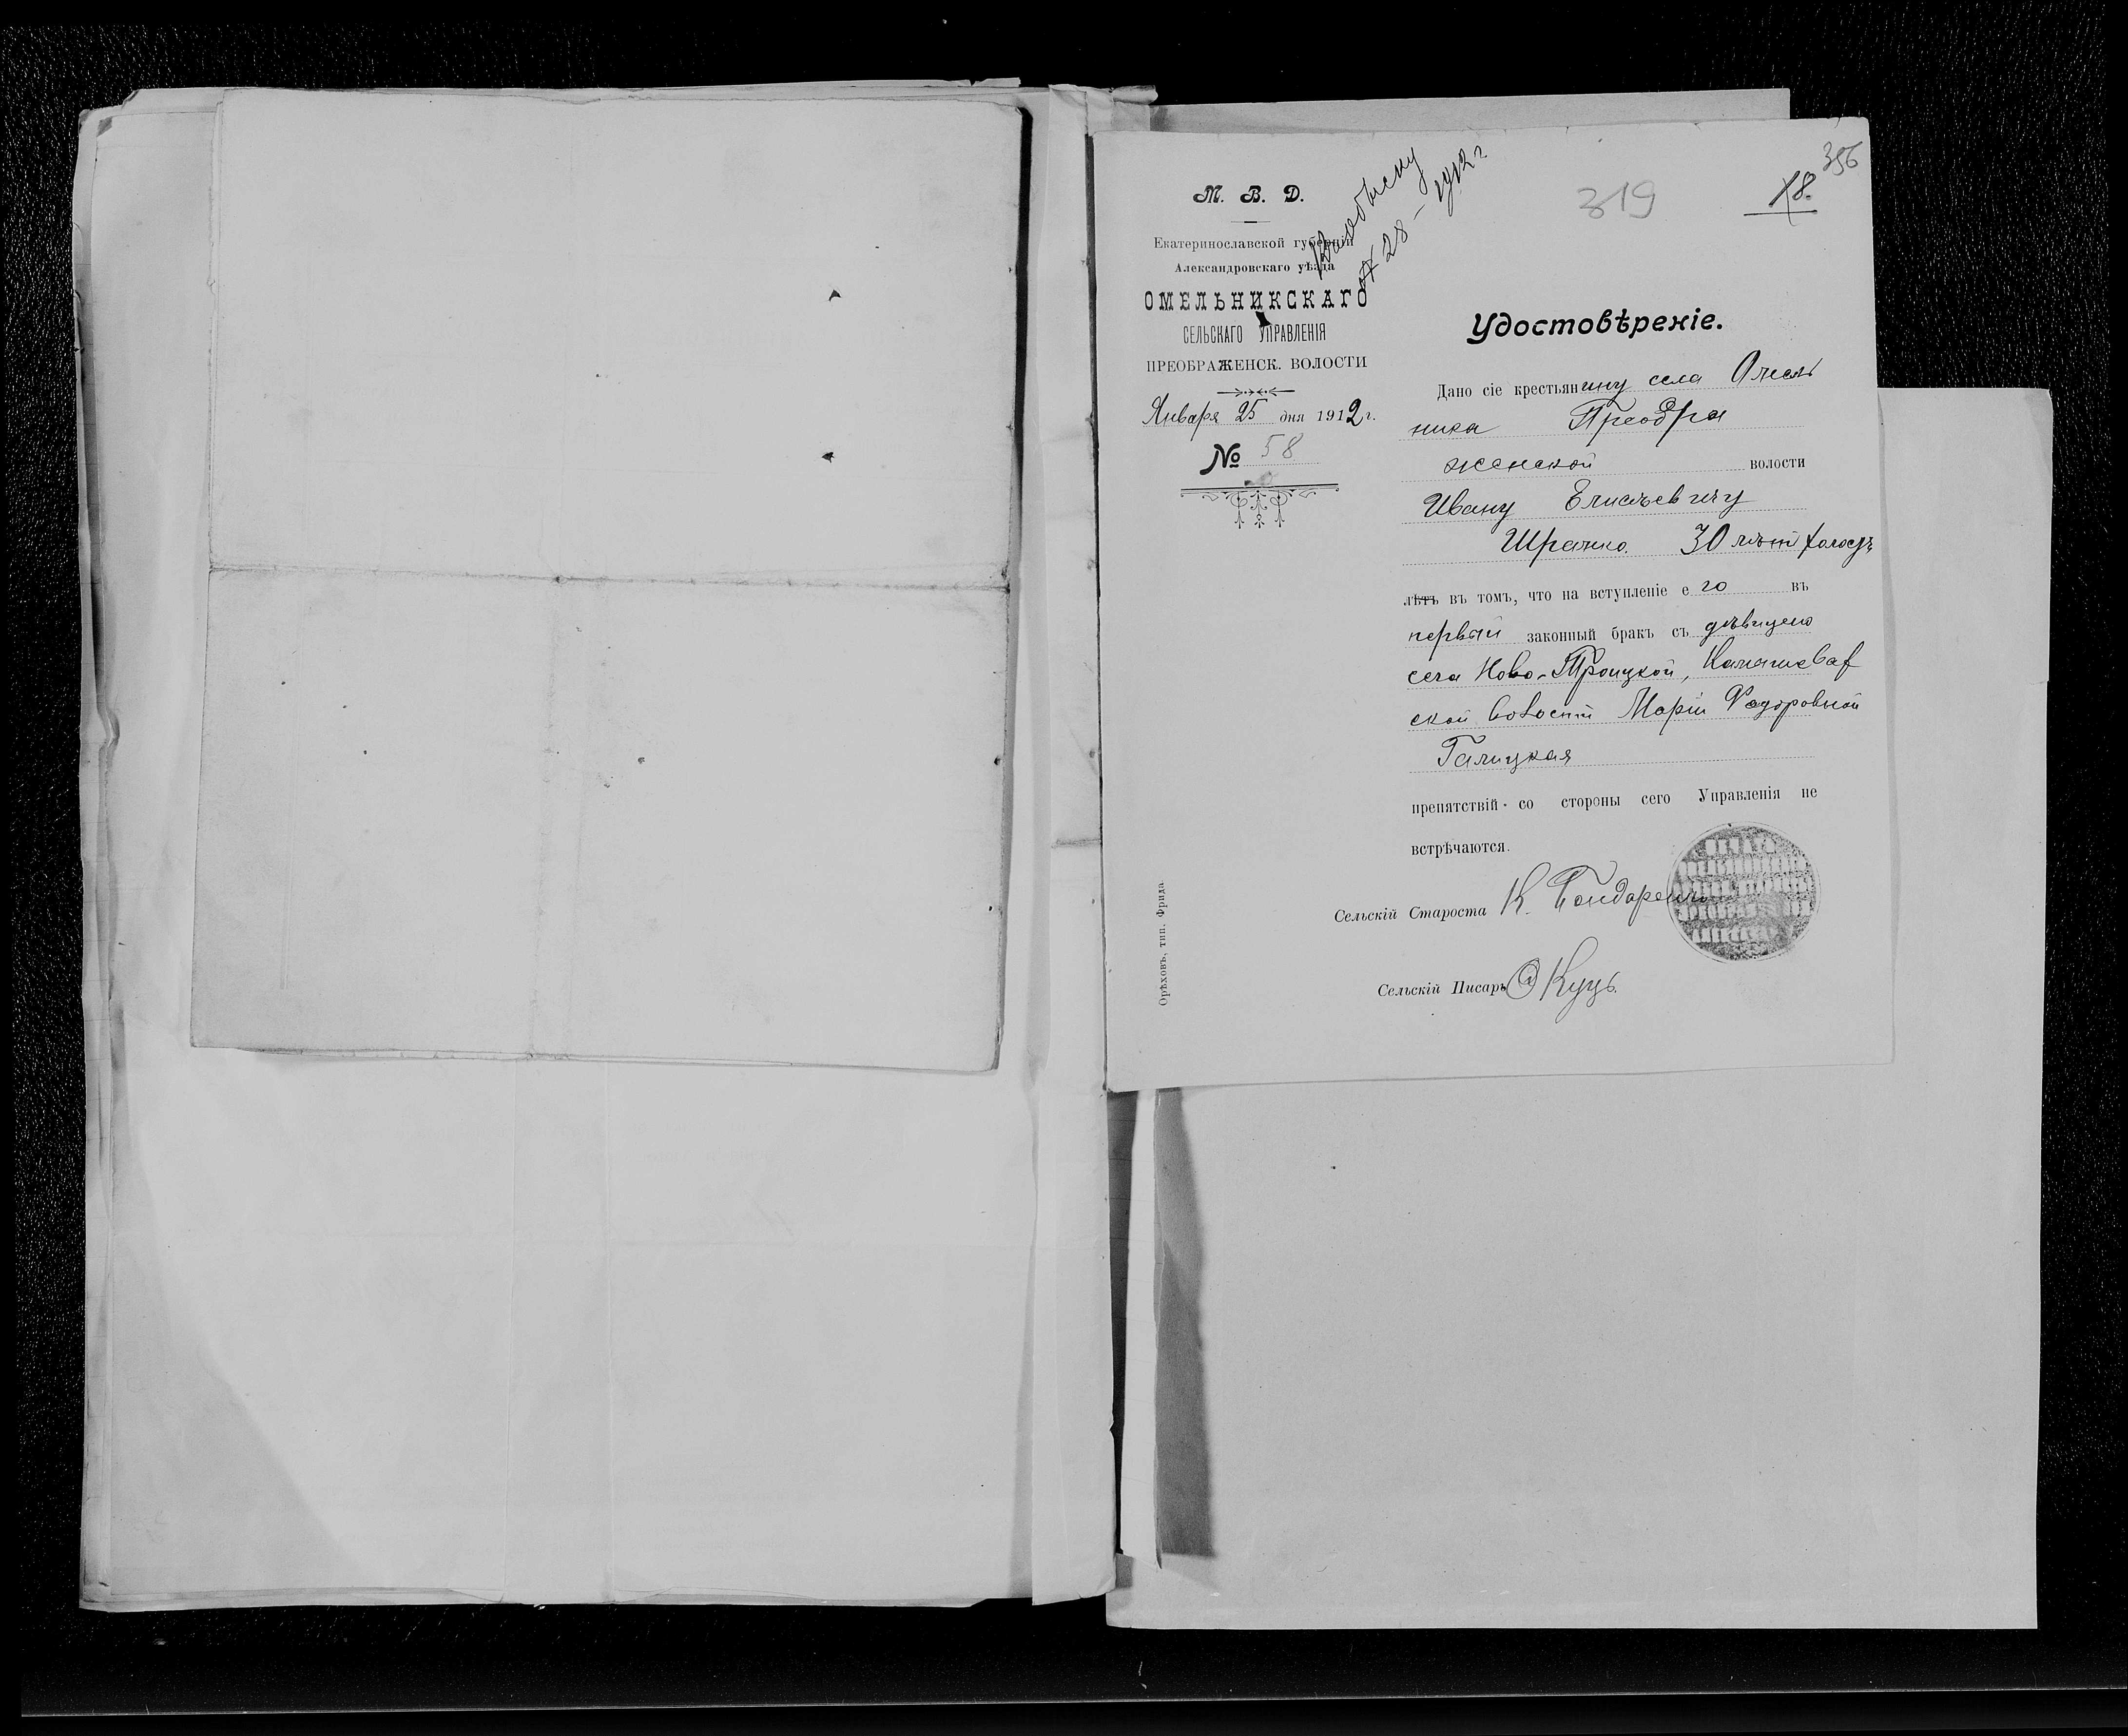 М. В. Д.
Екатеринославской губерніи
Александровскаго уѣзда
ОМЕЛЬНИКСКАГО
СЕЛЬСКАГО УПРАВЛЕНІЯ
ПРЕОБРАЖЕНСК. ВОЛОСТИ
Января 25 дня 1912 г.
№ 58
28 – 1912 г
319
18.
356
Удостовѣреніе.
Дано сіе крестьянину села Омель
ника Преобра
женской волости
Ивану Елисѣевичу
30 лѣт холостъ
лѣтъ въ томъ, что на вступленіе его въ
первый законный бракъ съ дѣвицею
села Ново-Троицкой,
ской волости Маріи Фадоровной
Галицкая
препятствій со стороны сего Управленія не
встрѣчаются.
Сельскій Староста К. Бондаренко
Сельскій Писарь Куць.
Орѣховъ, тип. Фрида